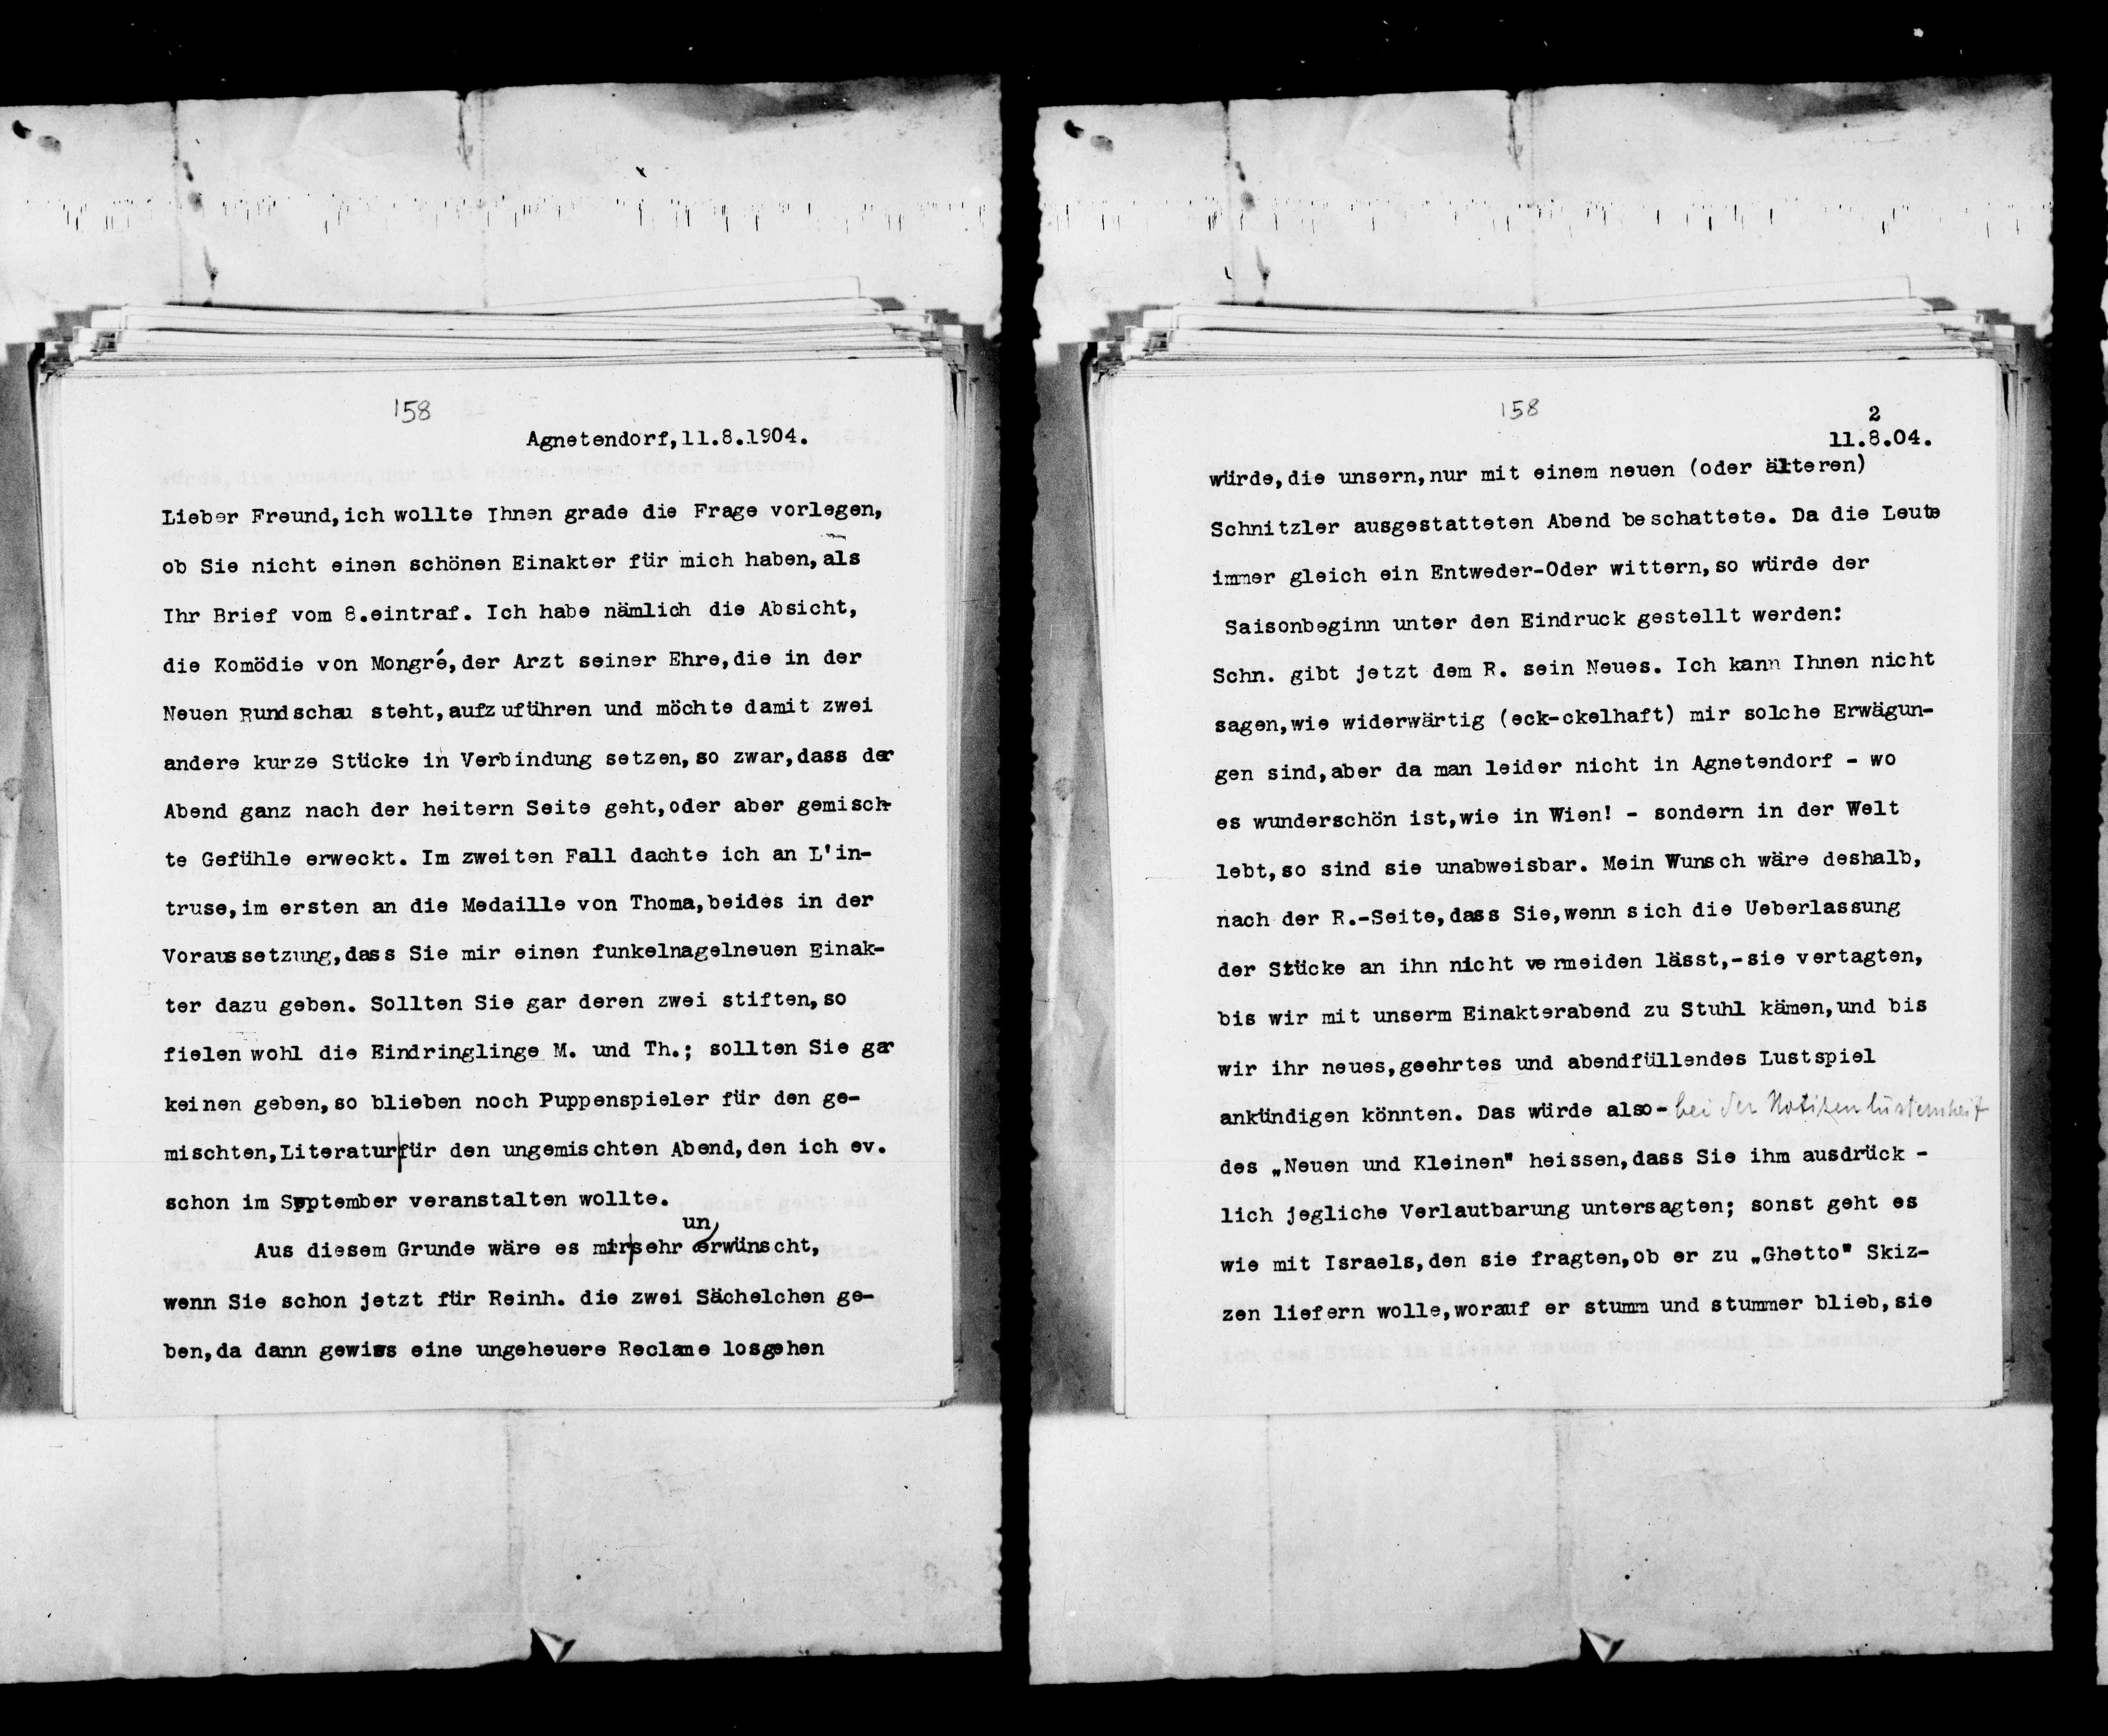 158
Agnetendorf,11.8.1904.
Lieber Freund,ich wollte Ihnen grade die Frage vorlegen,
ob Sie nicht einen schönen Einakter für mich haben,als
Ihr Brief vom 8.eintraf. Ich habe nämlich die Absicht,
die Komödie von Mongré,der Arzt seiner Ehre,die in der
Neuen Rundschau steht,aufzuführen und möchte damit zwei
andere kurze Stücke in Verbindung setzen,so zwar,dass der
Abend ganz nach der heitern Seite geht,oder aber gemisch-
te Gefühle erweckt. Im zweiten Fall dachte ich an L'in-
truse,im ersten an die Medaille von Thoma,beides in der
Voraussetzung,dass Sie mir einen funkelnagelneuen Einak-
ter dazu geben. Sollten Sie gar deren zwei stiften,so
fielen wohl die Eindringlinge M. und Th.; sollten Sie gar
keinen geben,so blieben noch Puppenspieler für den ge-
mischten,Literatur|für den ungemischten Abend,den ich ev.
schon im September veranstalten wollte.
un
Aus diesem Grunde wäre es mir|sehr erwünscht,
wenn Sie schon jetzt für Reinh. die zwei Sächelchen ge-
ben,da dann gewiss eine ungeheuere Reclame losgehen
158
2
11.8.04.
würde,die unsern,nur mit einem neuen (oder älteren)
Schnitzler ausgestatteten Abend beschattete. Da die Leute
immer gleich ein Entweder-Oder wittern,so würde der
Saisonbeginn unter den Eindruck gestellt werden:
Schn. gibt jetzt dem R. sein Neues. Ich kann Ihnen nicht
sagen,wie widerwärtig (eck-ckelhaft) mir solche Erwägun-
gen sind,aber da man leider nicht in Agnetendorf - wo
es wunderschön ist,wie in Wien! - sondern in der Welt
lebt,so sind sie unabweisbar. Mein Wunsch wäre deshalb,
nach der R.-Seite,dass Sie,wenn sich die Ueberlassung
der Stücke an ihn nicht vermeiden lässt,-sie vertagten,
bis wir mit unserm Einakterabend zu Stuhl kämen,und bis
wir ihr neues,geehrtes und abendfüllendes Lustspiel
ankündigen könnten. Das würde also- bei der Notizenlüsternheit
des „Neuen und Kleinen" heissen,dass Sie ihm ausdrück -
lich jegliche Verlautbarung untersagten; sonst geht es
wie mit Israels,den sie fragten,ob er zu „Ghetto" Skiz-
zen liefern wolle,worauf er stumm und stummer blieb,sie